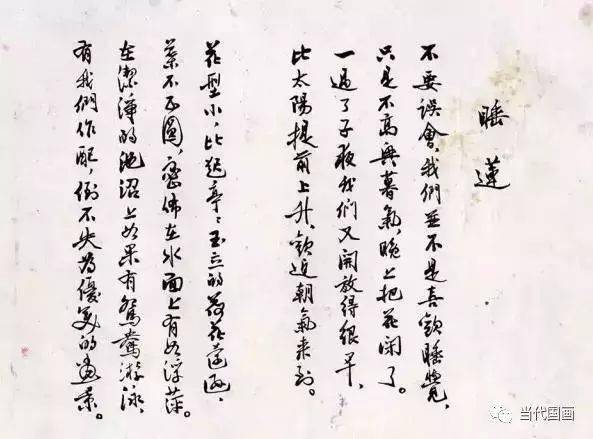 睡蓮
不要誤會,我們並不是喜歡睡覺,
只是不高興暮氣,晚上把花閉了。
一過了子夜我们又開放得很早,
比太陽提前上升,歡迎朝氣来到。
花型小,比起亭々玉立的荷花遠遜,
葉不正圓,密佈在水面上有如浮萍。
在潔淨的池沼上如果有鴛鴦游泳,
有我們作配,倒不失為優美的畫景。
当代国画